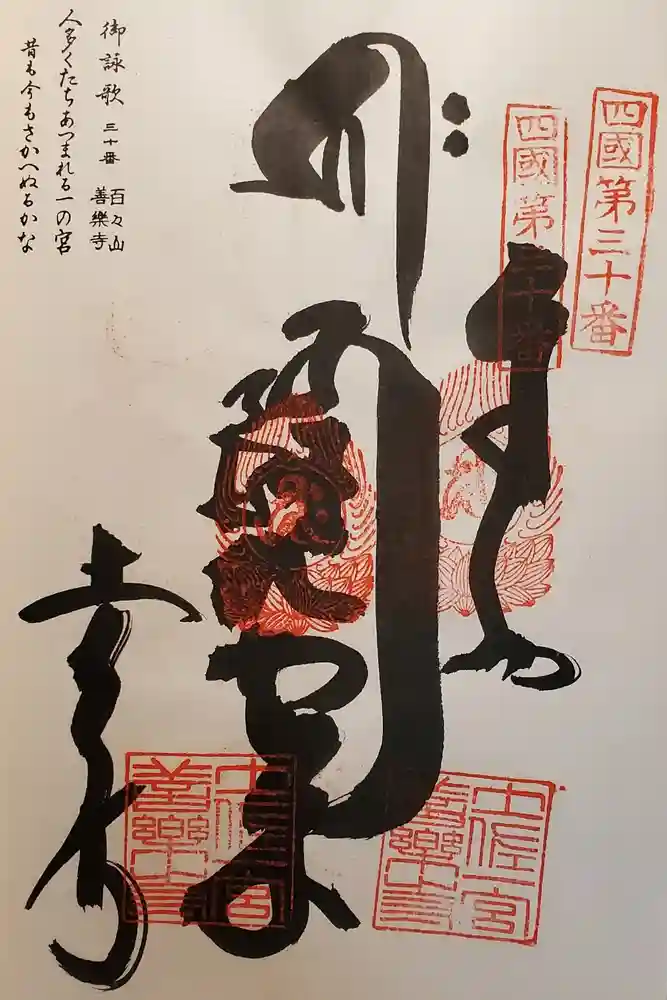 四國第三十番
四國第三十番
奉納
阿弥陀如来
善楽寺
土佐一宮
善樂寺
土佐一宮
善樂寺
御詠歌 三十番 百々山
善樂寺
人多くたちあつまれる一の宮
昔も今もさかへぬるかな